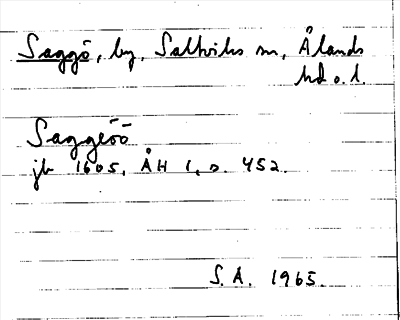 Saggö, by, Saltviks sn, Ålands
hd o. l.
Saggeöö
jb 1605, ÅH 1, s. 452.
S.A. 1965.